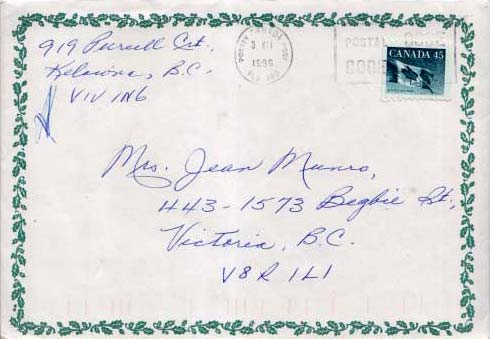 919 Purcell Crt.
Kelowna, B.C.
V1V 1N6
POSTES CANADA POST
3 XII
1996
POSTAL CODE
CANADA 45
Mrs. Jean Munro,
443-1573 Begbie St.,
Victoria, B.C.
V8R 1L1